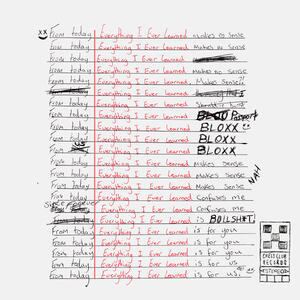 From today Everything I Ever Learned makes no sense
From today Everything I Ever Learned Makes no Sense
From today Everything I Ever Learned
From today Everything I Ever Learned makes no sense
From today Everything I Ever Learned. Makes Sense??
Everything I Ever Learned
From today Everything I Ever Learned
From today Everything I Ever Learned Passport
From today Everything I Ever Learned BLOXX
From today Everything I Ever Learned BLOXX
From Everything I Ever Learned BLOXX
From today Everything I Ever Learned makes sense
From today Everything I Ever Learned Makes Sense
From today Everything I Ever Learned Makes Sense
From today Everything I Ever Learned Confuses me
Since forever Everything I Ever Learned Confuses me
Everything I Ever Learned is BOLLSH*T
From today Everything I Ever Learned is for you
From today Everything I Ever Learned is for you
From today Everything I Ever Learned is for you.
From today Everything I Ever Learned is for us!
CHESS CLUB
RECORDS